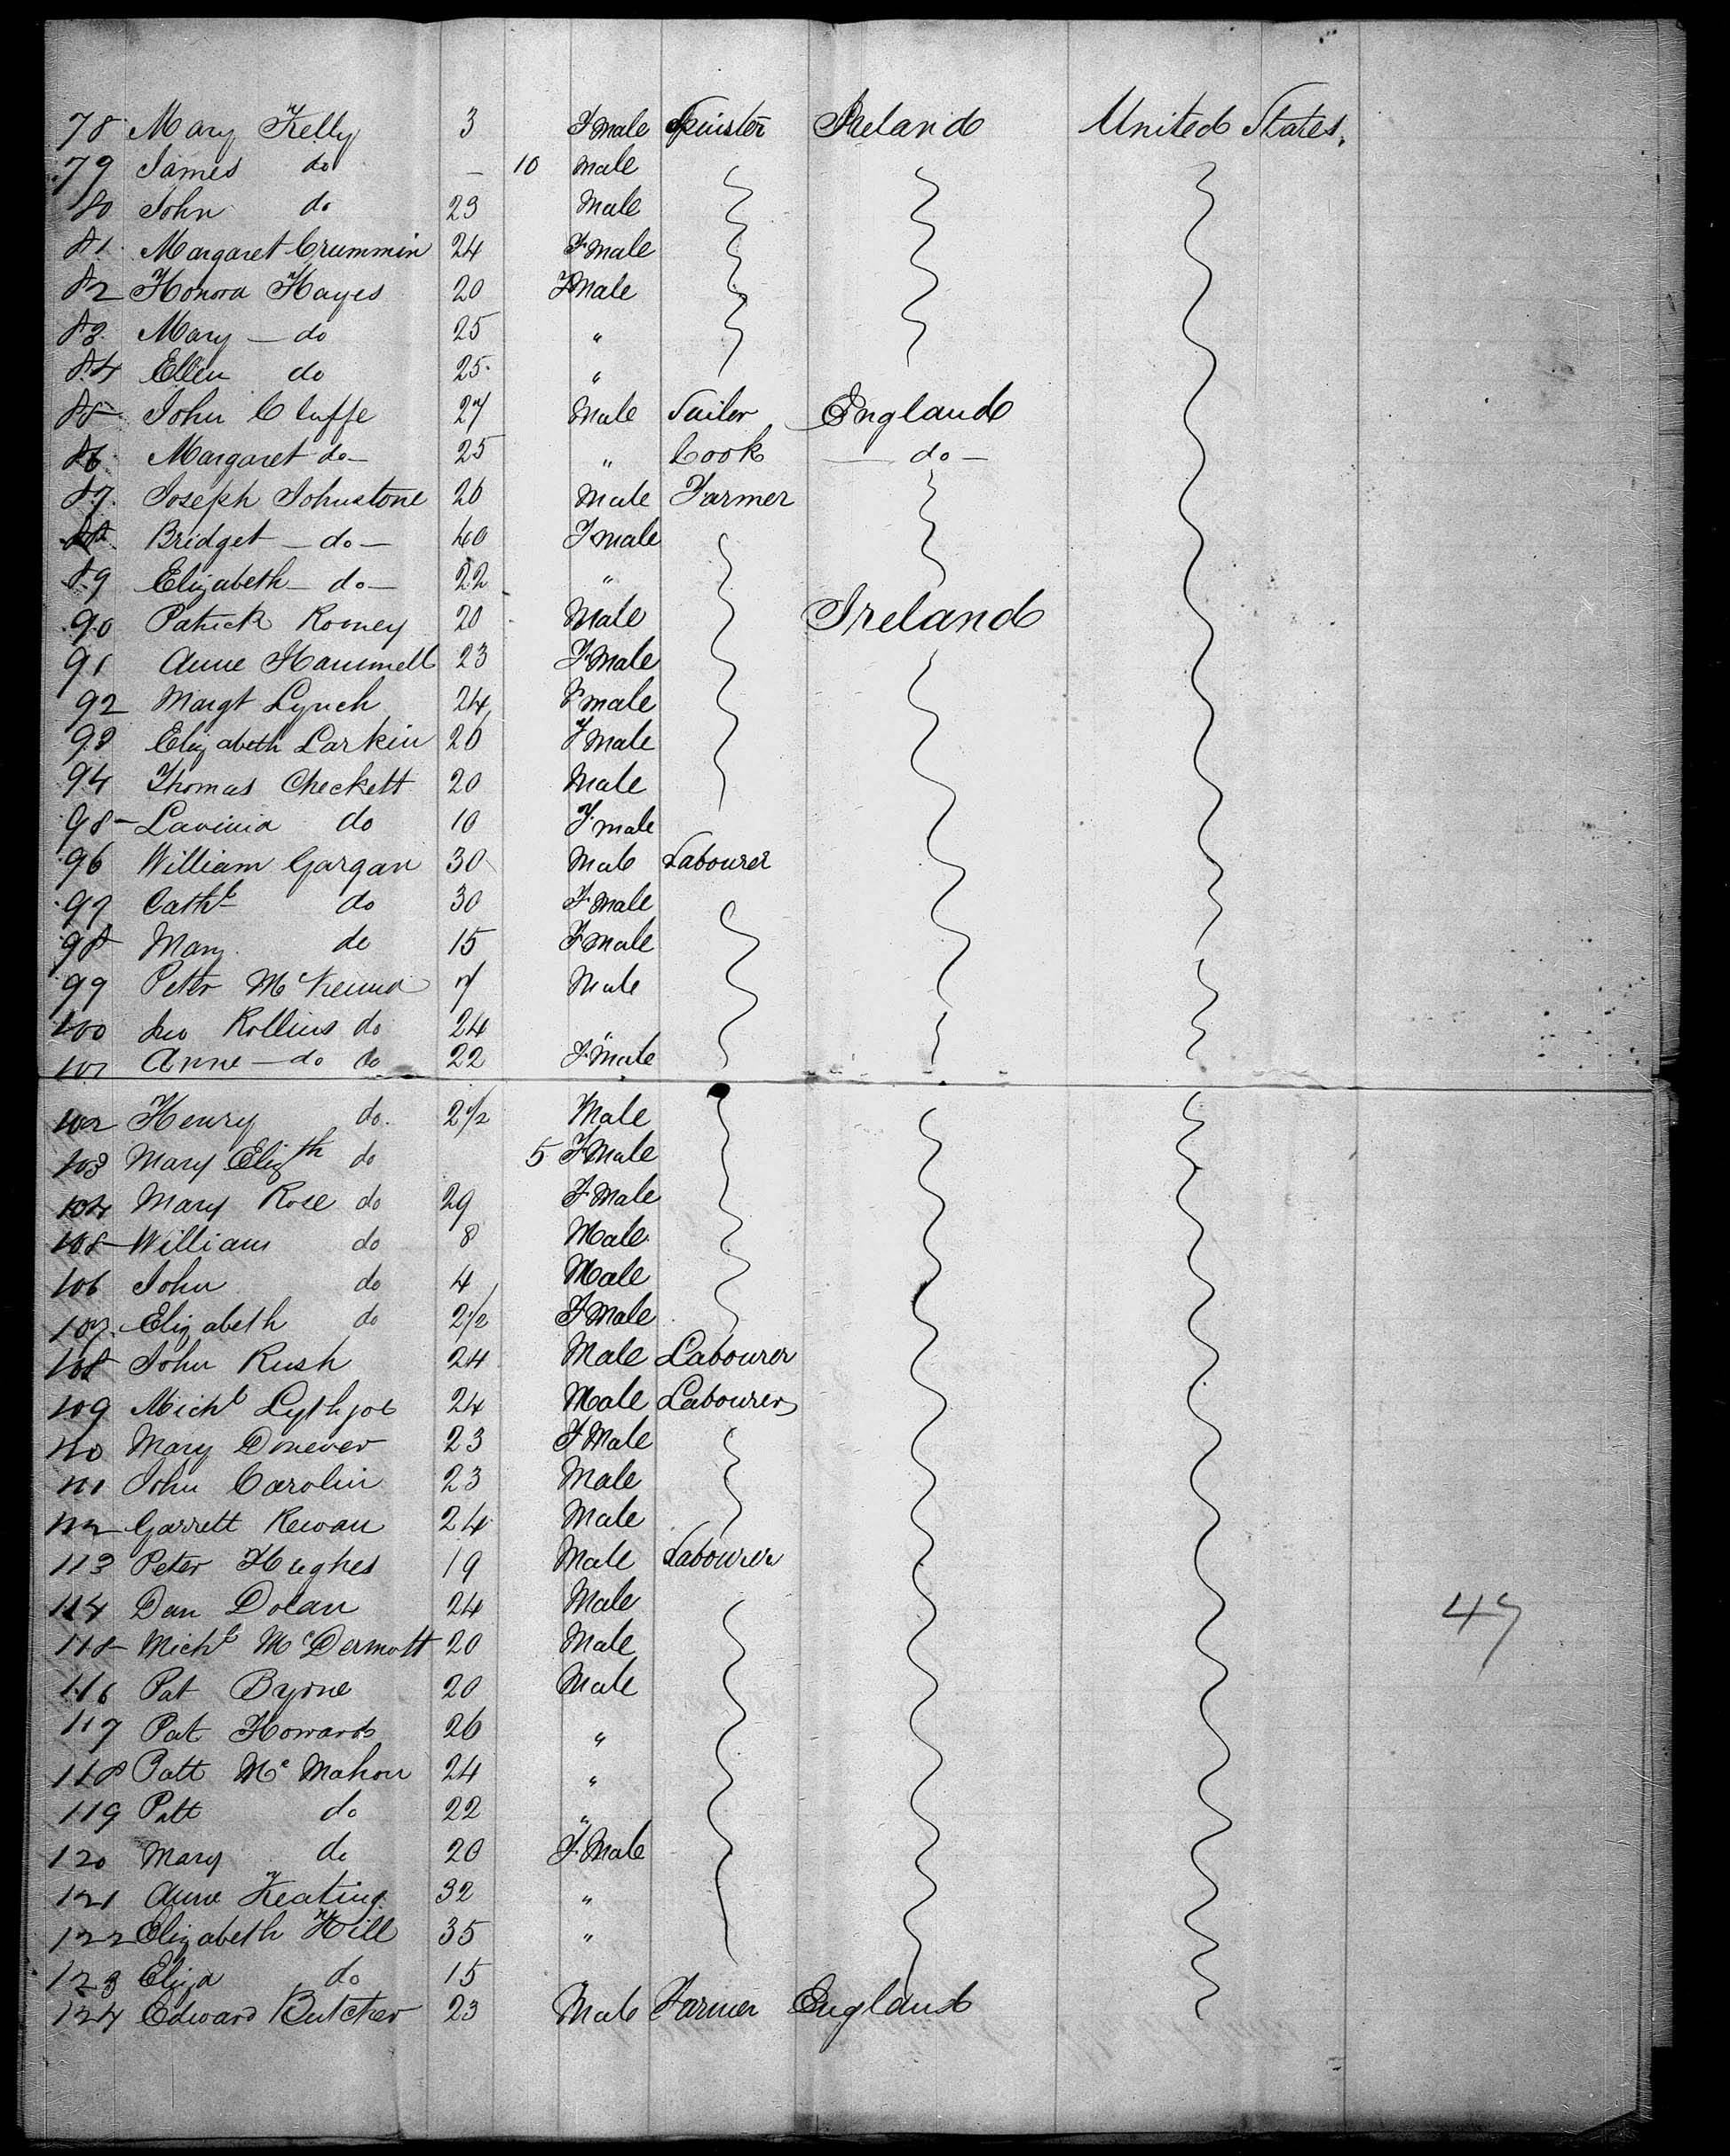 78 Mary Kelly 3 Fmale Spinster Ireland United States.
79 James do – 10 Male
80 John do 23 Male
81 Margaret Crummin 24 Fmale
82 Honora Hayes 20 Fmale
83 Mary – do 25 "
84 Ellen do 25 "
85 John Cluffe 27 Male England
86 Margaret do – 25 " Cook – do –
87 Joseph Johnstone 26 Male Farmer
88 Bridget – do – 40 Fmale
89 Elizabeth – do – 22 "
90 Patrick Rooney 20 Male Ireland
91 Anne Hammell 23 Fmale
92 Margt Lynch 24 Fmale
93 Elizabeth Larkin 26 Fmale
94 Thomas Checkett 20 Male
95 Lavinia do 10 Fmale
96 William Gargan 30 Male Labourer
97 Cath do 30 Fmale
98 Mary do 15 Fmale
99 Peter McKenna 7 Male
100 Rollins do 24 "
101 Anne – do do 22 Fmale
102 Henry do. 2 1/2 Male
103 Mary Elizth do 5 Fmale
104 Mary Rose do 29 Fmale
105 William do 8 Male
106 John do 4 Male
107 Elizabeth do 2 1/2 Fmale
108 John Rush 24 Male Labourer
109 Michl Lythgoe 24 Male Labourer
110 Mary Donever 23 Fmale
111 John Carolin 23 Male
112 Garrett Kewan 24 Male
113 Peter Hughes 19 Male Labourer
114 Dan Dolan 24 Male
115 Michl McDermott 20 Male
116 Pat Byrne 20 Male
117 Pat Howard 26 "
118 Patt McMahon 24 "
119 Patt do 22 "
120 Mary do 20 Fmale
121 Anne Keating 32 "
122 Elizabeth Hill 35 "
123 Eliza do 15 "
124 Edward Butcher 23 Male Farmer England